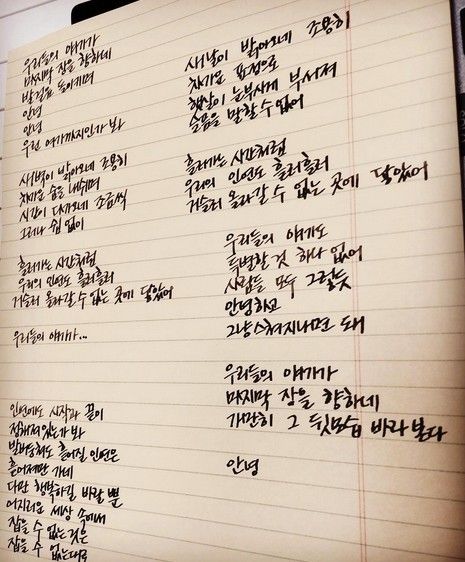 우리들의 얘기가
마지막 장을 향하네
발걸음 돌아서며
안녕
안녕
우린 여기까지인가 봐
새벽이 밝아오네 조용히
차가운 숨을 내쉬며
시간이 다가오네 조금씩
그러나 쉼 없이
흘러가는 시간처럼
우리의 인연도 흘러흘러
거슬러 올라갈 수 없는 곳에 닿았어
우리들의 얘기가...
인연에도 시작과 끝이
정해져있는가 봐
발버둥쳐도 흩어질 인연은
흩어져만 가네
다만 행복하길 바랄 뿐
어지러운 세상 속에서
잡을 수 없는 것은
잡을 수 없는대로
새날이 밝아오네 조용히
차가운 표정으로
햇살이 눈부시게 부서져
슬픔을 말할 수 없어
흘러가는 시간처럼
우리의 인연도 흘러흘러
거슬러 올라갈 수 없는 곳에 닿았어
우리들의 얘기도
특별할 것 하나 없어
사람들 모두 그렇듯
안녕하고
그냥 스쳐지나면 돼
우리들의 얘기가
마지막 장을 향하네
가만히 그 뒷모습 바라 본다
안녕